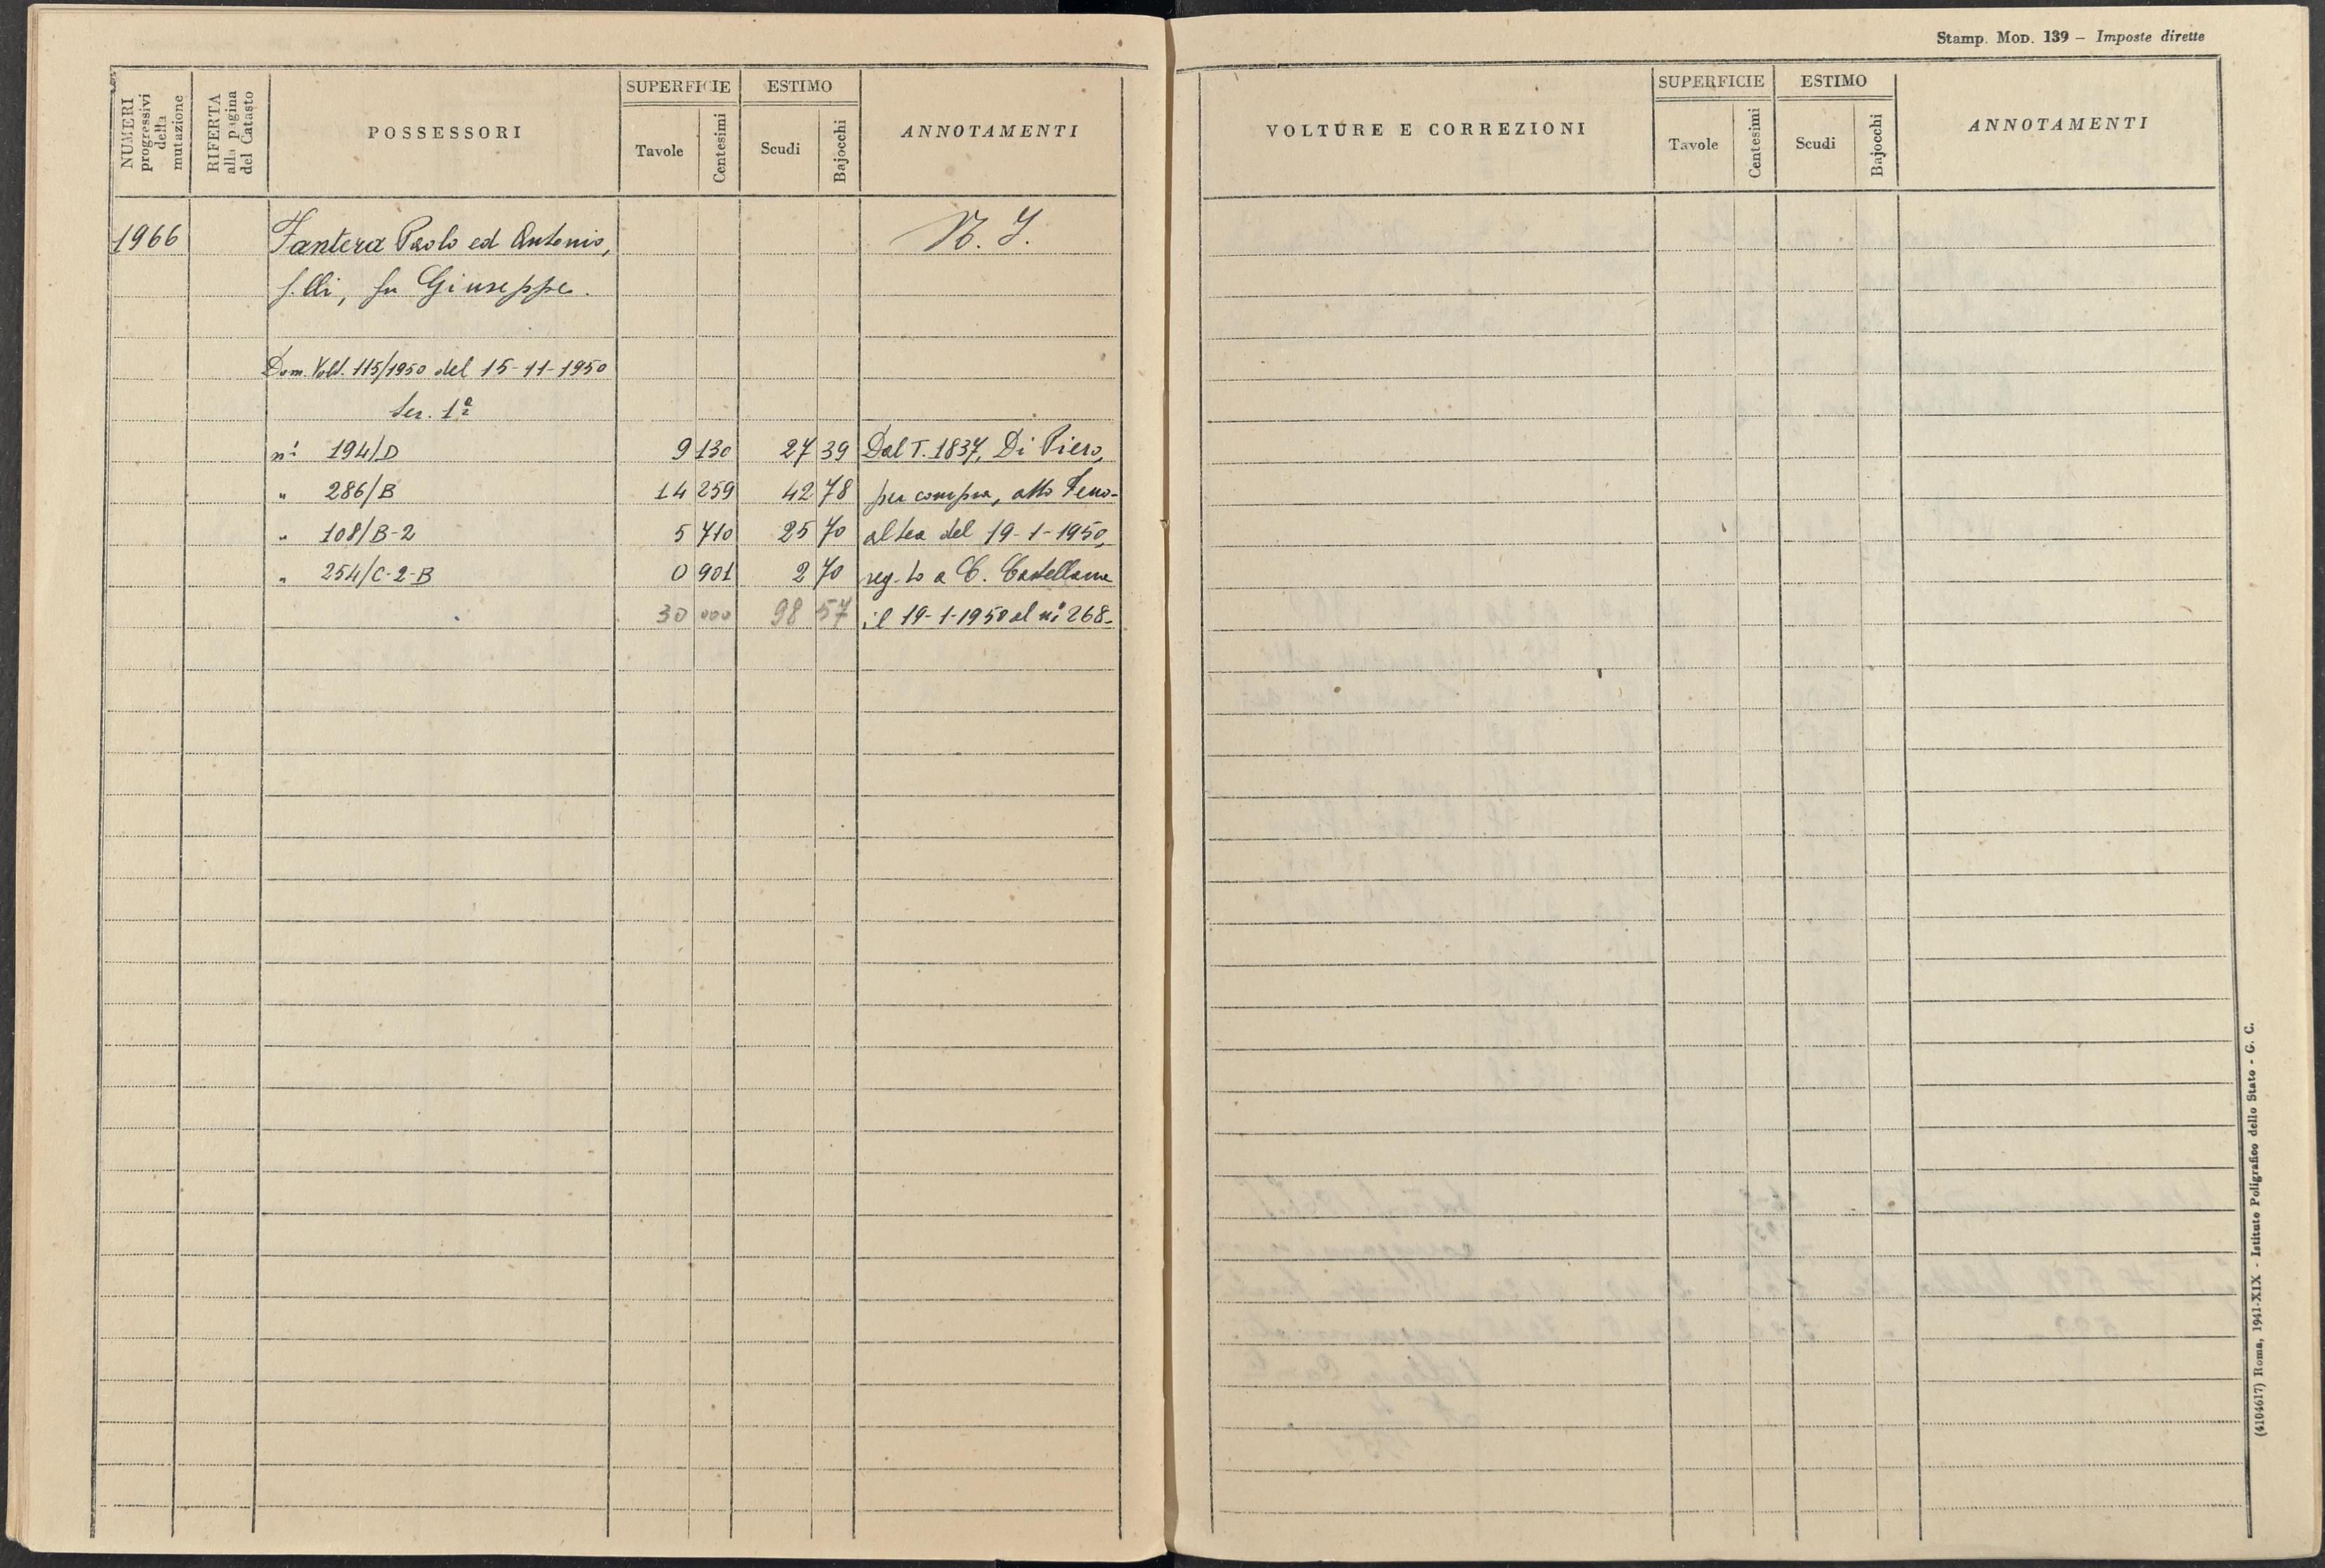 NUMERI progressivi della mutazione
RIFERTA alla pagina del Catasto
POSSESSORI
SUPERFICIE
Tavole
Centesimi
ESTIMO
Scudi
Bajocchi
ANNOTAMENTI
1966 Fantera Paolo ed Antonio, N. I.
f.lli, fu Giuseppe.
Dom. Volt. 115/1950 del 15-11-1950
Sez. 1ª
nº 194/D 9 130 27 39 Dal T. 1837, Di Piero,
" 286/B 14 259 42 78 per compra, atto Feno-
" 108/B-2 5 710 25 70 altea del 19-1-1950,
" 254/C-2-B 0 901 2 70 reg.to a C. Castellana
30 000 98 57 il 19-1-1950 al nº 268-
Stamp. Mod. 139 – Imposte dirette
VOLTURE E CORREZIONI
SUPERFICIE
Tavole
Centesimi
ESTIMO
Scudi
Bajocchi
ANNOTAMENTI
(4104617) Roma, 1941-XIX - Istituto Poligrafico dello Stato - G. C.